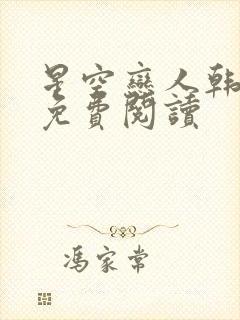 星空戀人韓
免費閱讀
馮家常